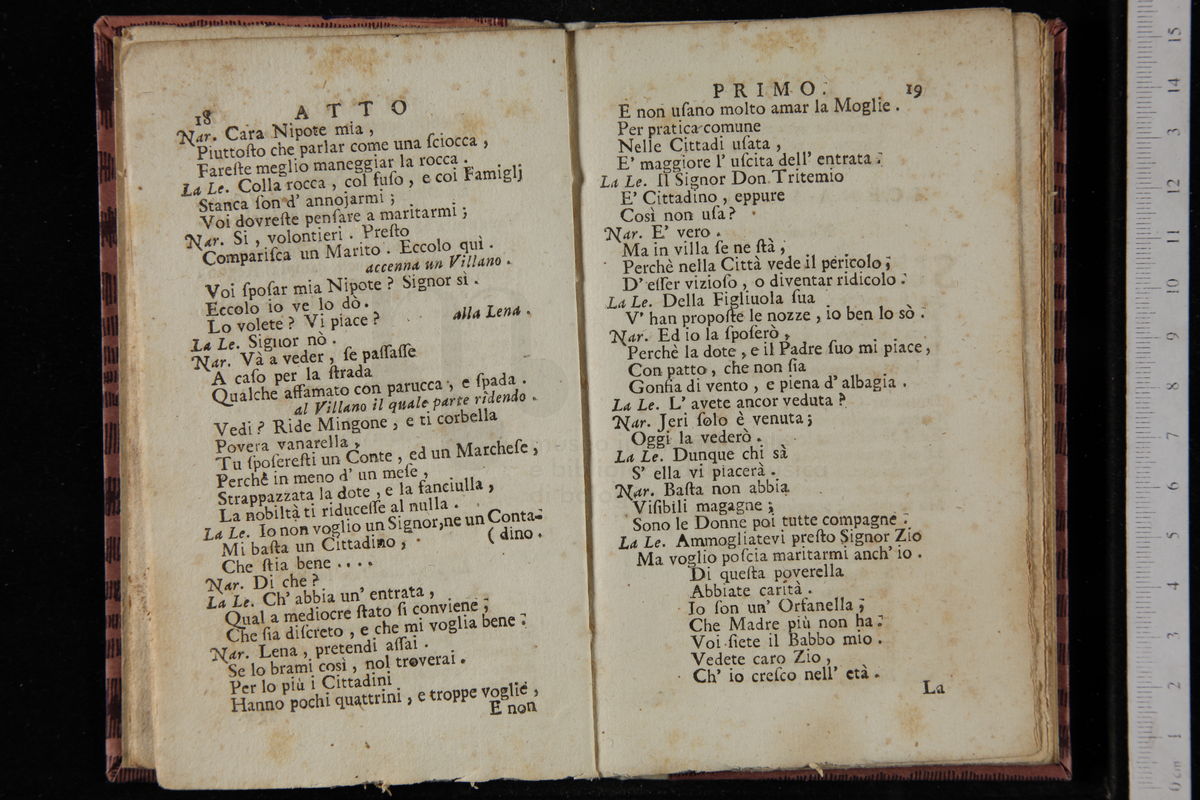 18 ATTO
Nar. Cara Nipote mia,
Piuttoſto che parlar come una ſciocca,
Fareſte meglio maneggiar la rocca.
La Le. Colla rocca, col fuſo, e coi Famiglj
Stanca ſon d' annojarmi;
Voi dovreſte penſare a maritarmi;
Nar. Si, volontieri. Preſto
Compariſca un Marito. Eccolo quì.
accenna un Villano.
Voi ſpoſar mia Nipote? Signor sì.
Eccolo io ve lo dò.
Lo volete? Vi piace? alla Lena.
La Le. Signor nò.
Nar. Và a veder, ſe paſſaſſe
A caſo per la ſtrada
Qualche affamato con parucca, e ſpada.
al Villano il quale parte ridendo.
Vedi? Ride Mingone, e ti corbella
Povera vanarella,
Tu ſpoſereſti un Conte, ed un Marcheſe,
Perchè in meno d' un meſe,
Strappazzata la dote, e la fanciulla,
La nobiltà ti riduceſſe al nulla.
La Le. Io non voglio un Signor, ne un Conta-
Mi baſta un Cittadino, (dino.
Che ſtia bene....
Nar. Di che?
La Le. Ch' abbia un' entrata,
Qual a mediocre ſtato ſi conviene;
Che ſia diſcreto, e che mi voglia bene.
Nar. Lena, pretendi aſſai.
Se lo brami così, nol troverai.
Per lo più i Cittadini
Hanno pochi quattrini, e troppe voglie,
E non
PRIMO. 19
E non uſano molto amar la Moglie.
Per pratica comune
Nelle Cittadi uſata,
E' maggiore l' uſcita dell' entrata.
La Le. Il Signor Don Tritemio
E' Cittadino, eppure
Così non uſa?
Nar. E' vero.
Ma in villa ſe ne ſtà,
Perchè nella Città vede il pericolo;
D' eſſer vizioſo, o diventar ridicolo.
La Le. Della Figliuola ſua
V' han propoſte le nozze, io ben lo sò.
Nar. Ed io la ſpoſerò,
Perchè la dote, e il Padre ſuo mi piace,
Con patto, che non ſia
Gonfia di vento, e piena d' albagia.
La Le. L' avete ancor veduta?
Nar. Jeri ſolo è venuta;
Oggi la vederò.
La Le. Dunque chi sà
S' ella vi piacerà.
Nar. Baſta non abbia
Viſibili magagne;
Sono le Donne poi tutte compagne.
La Le. Ammogliatevi preſto Signor Zio
Ma voglio poſcia maritarmi anch' io.
Di queſta poverella
Abbiate carità.
Io ſon un' Orfanella;
Che Madre più non ha.
Voi ſiete il Babbo mio.
Vedete caro Zio,
Ch' io creſco nell' età.
La